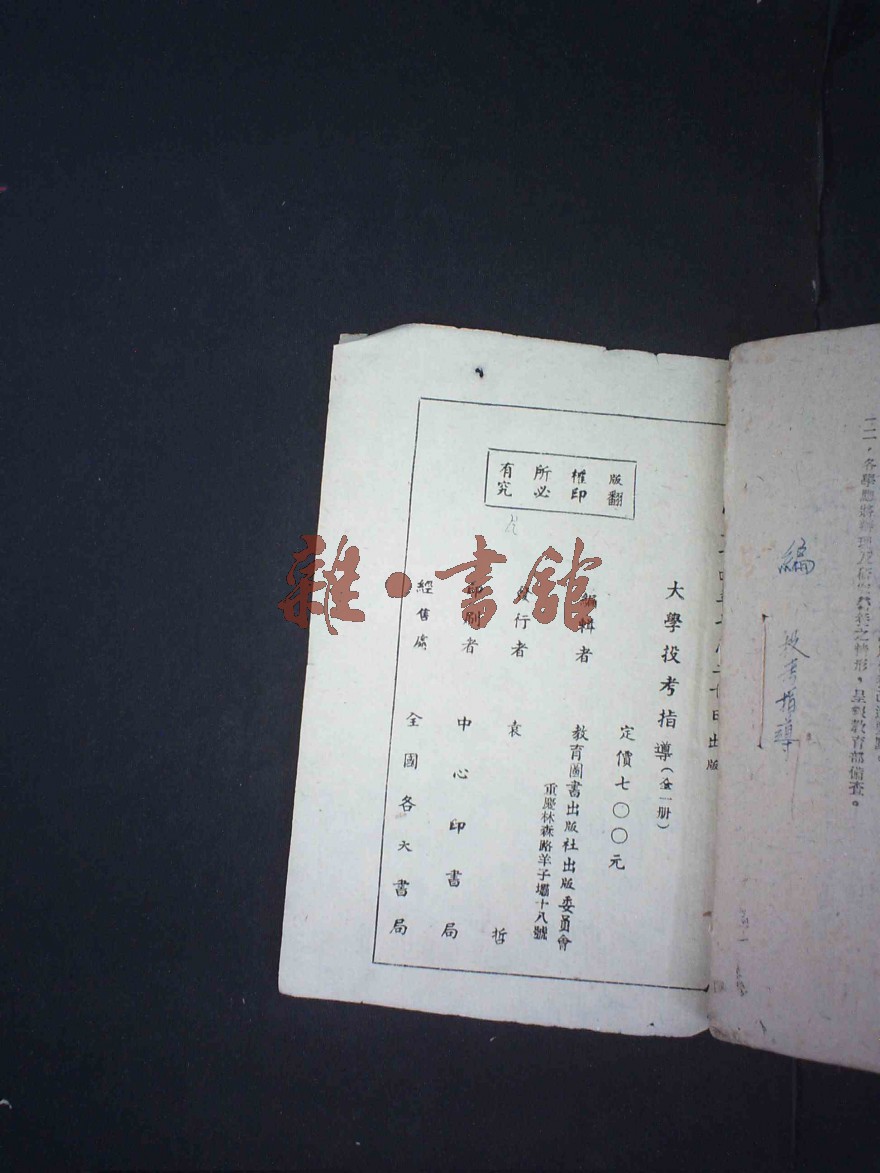 一二，各學應將辦理
之情形，呈報教育部備查。
編
投考指導
日出版
大學投考指導（全一册）
定價七〇〇元
編輯者　教育圖書出版社出版委員會
重慶林森路羊子壩十八號
發行者　袁哲
印刷者　中心印書局
經售處　全國各大書局
版權所有
翻印必究
雜·書館